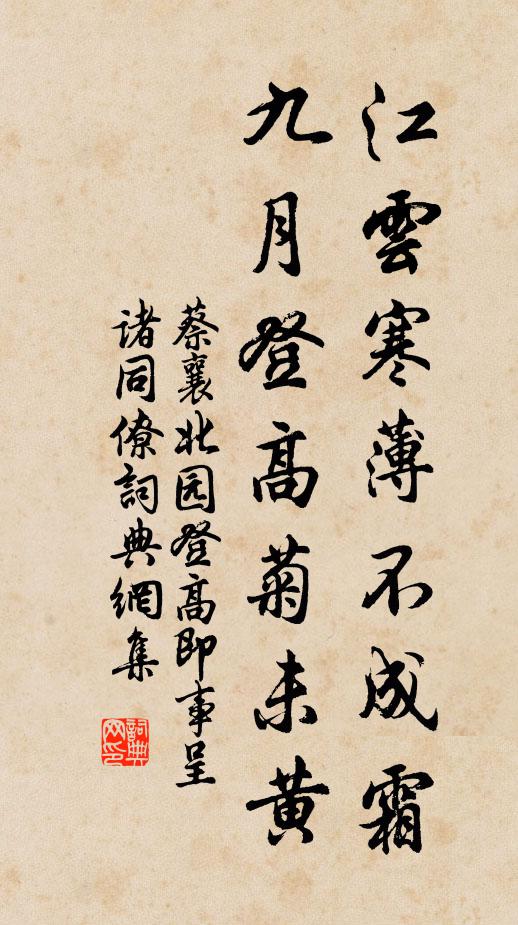 江雲寒薄不成霜
九月登高菊未黄
蔡襄北园登高即事呈
诸同僚詞典網集
詞典
网印